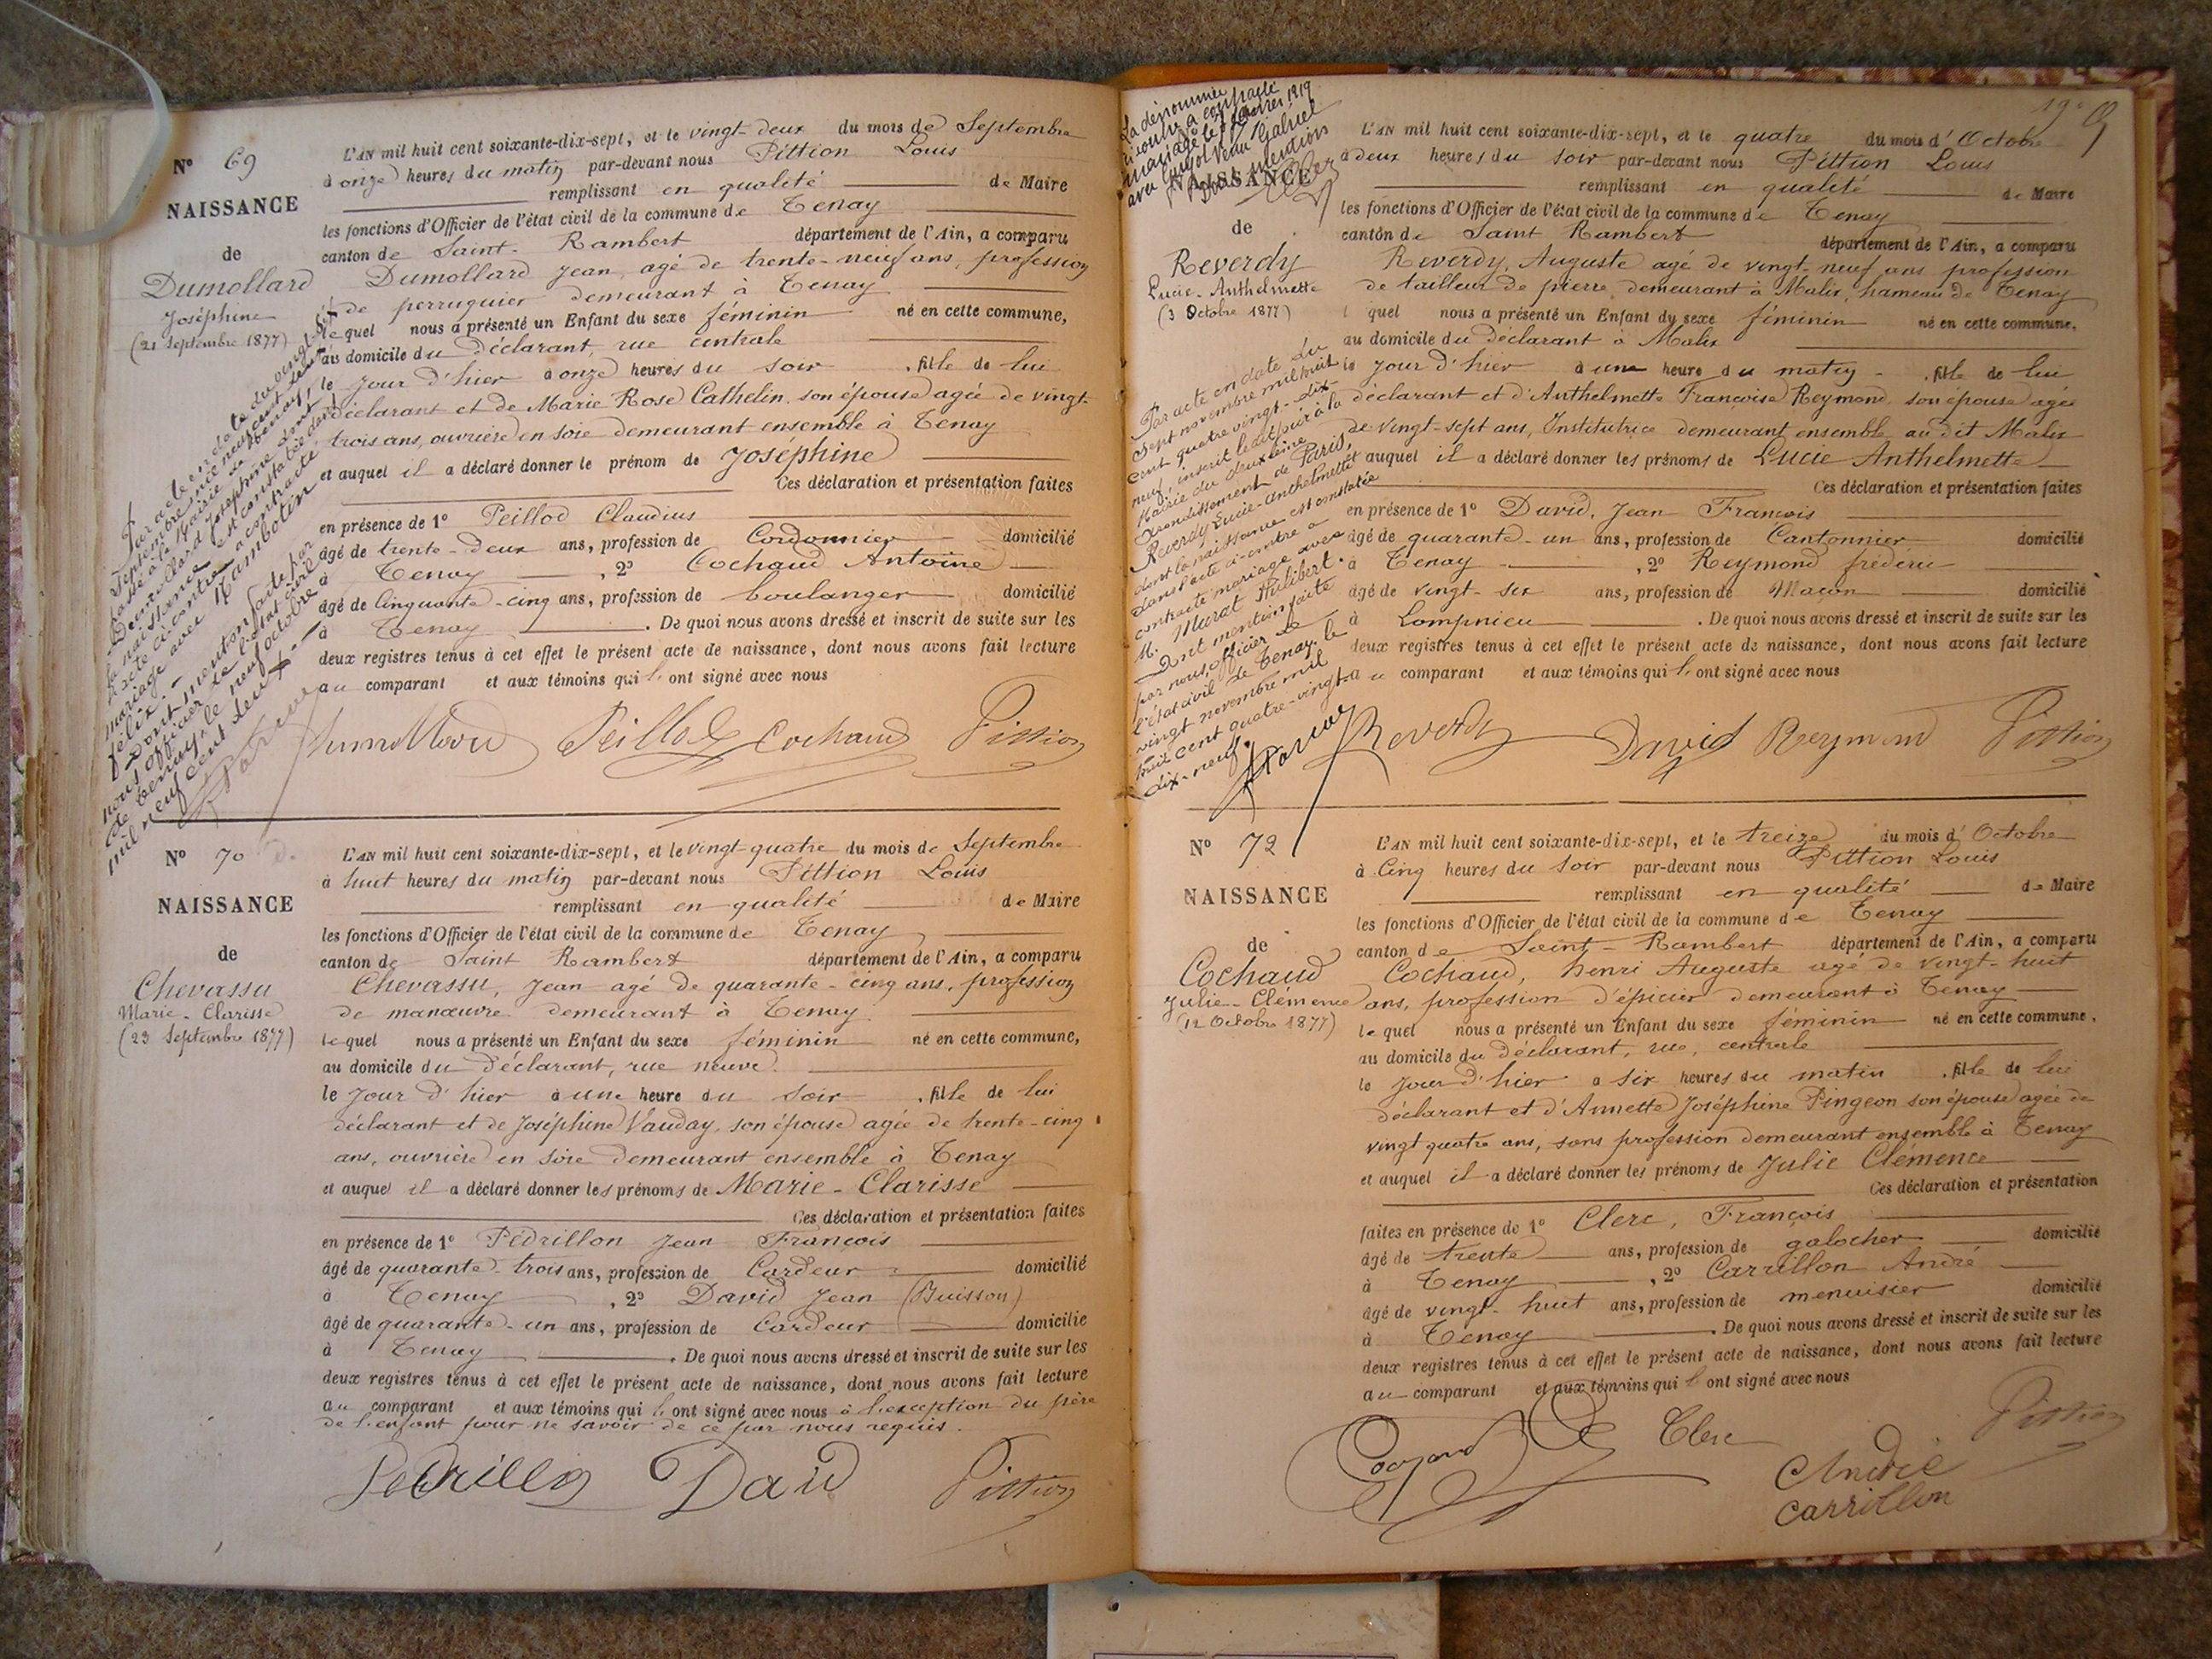 N° 69
NAISSANCE
de
Dumollard
Joséphine
(21 Septembre 1877)
L'AN mil huit cent soixante-dix-sept, et le vingt-deux du mois de Septembre
à onze heures du matin par-devant nous Pittion Louis
remplissant en qualité de Maire
les fonctions d'Officier de l'état civil de la commune de Tenay
canton de Saint-Rambert département de l'Ain, a comparu
Dumollard Jean, agé de trente-neuf ans, profession
de perruquier demeurant à Tenay
lequel nous a présenté un Enfant du sexe féminin né en cette commune,
au domicile du déclarant, rue centrale
le jour d'hier à onze heures du soir, fille de lui
déclarant et de Marie Rose Cathelin, son épouse agée de vingt-
trois ans, ouvrière en soie demeurant ensemble à Tenay
et auquel il a déclaré donner le prénom de Joséphine
Ces déclaration et présentation faites
en présence de 1° Peillod Claudius
âgé de trente-deux ans, profession de Cordonnier domicilié
à Tenay, 2° Cochaud Antoine
âgé de Cinquante-cinq ans, profession de boulanger domicilié
à Tenay. De quoi nous avons dressé et inscrit de suite sur les
deux registres tenus à cet effet le présent acte de naissance, dont nous avons fait lecture
au comparant et aux témoins qui l'ont signé avec nous
Dumollard Peillod Cochaud Pittion
Par acte en date du vingt-six
Septembre mil neuf cent deux
passé à la Mairie de Tenay,
Dumollard Joséphine dont
la naissance est constatée dans
l'acte ci-contre a contracté
mariage avec Hambotin
félix.-
Dont mention faite par
nous officier de l'état civil
de Tenay, le neuf octobre
mil neuf cent deux
N° 70
NAISSANCE
de
Chevassu
Marie-Clarisse
(23 Septembre 1877)
L'AN mil huit cent soixante-dix-sept, et le vingt-quatre du mois de Septembre
à huit heures du matin par-devant nous Pittion Louis
remplissant en qualité de Maire
les fonctions d'Officier de l'état civil de la commune de Tenay
canton de Saint Rambert département de l'Ain, a comparu
Chevassu, Jean agé de quarante-cinq ans, profession
de manœuvre demeurant à Tenay
lequel nous a présenté un Enfant du sexe féminin né en cette commune,
au domicile du déclarant, rue neuve
le jour d'hier à une heure du soir, fille de lui
déclarant et de Joséphine Vauday, son épouse agée de trente-cinq
ans, ouvrière en soie demeurant ensemble à Tenay
et auquel il a déclaré donner les prénoms de Marie-Clarisse
Ces déclaration et présentation faites
en présence de 1° Pédrillon Jean François
âgé de quarante-trois ans, profession de Cardeur domicilié
à Tenay, 2° David Jean (Buisson)
âgé de quarante-un ans, profession de Cardeur domicilié
à Tenay. De quoi nous avons dressé et inscrit de suite sur les
deux registres tenus à cet effet le présent acte de naissance, dont nous avons fait lecture
au comparant et aux témoins qui l'ont signé avec nous à l'exception du père
de l'enfant pour ne savoir de ce par nous requis.
Pedrillon David Pittion
19
La dénommée
ci-contre a contracté
mariage le
avec Gabriel
Dont mention
NAISSANCE
de
Reverdy
Lucie-Anthelmette
(3 Octobre 1877)
L'AN mil huit cent soixante-dix-sept, et le quatre du mois d'Octobre
à deux heures du soir par-devant nous Pittion Louis
remplissant en qualité de Maire
les fonctions d'Officier de l'état civil de la commune de Tenay
canton de Saint Rambert département de l'Ain, a comparu
Reverdy, Auguste agé de vingt-neuf ans profession
de tailleur de pierre, demeurant à Malix, hameau de Tenay
lequel nous a présenté un Enfant du sexe féminin né en cette commune,
au domicile du déclarant à Malix
le jour d'hier à une heure du matin, fille de lui
déclarant et d'Anthelmette Françoise Reymond son épouse agée
de vingt-sept ans, Institutrice demeurant ensemble au dit Malix
et auquel il a déclaré donner les prénoms de Lucie Anthelmette
Ces déclaration et présentation faites
en présence de 1° David, Jean François
âgé de quarante-un ans, profession de Cantonnier domicilié
à Tenay, 2° Reymond frédéric
âgé de vingt-six ans, profession de Maçon domicilié
à Lompnieu. De quoi nous avons dressé et inscrit de suite sur les
deux registres tenus à cet effet le présent acte de naissance, dont nous avons fait lecture
au comparant et aux témoins qui l'ont signé avec nous
Reverdy David Reymond Pittion
Par acte en date du
sept novembre mil huit
cent quatre vingt-dix-
neuf, inscrit ledit jour à la
Mairie du deuxième
arrondissement de Paris,
Reverdy Lucie-Anthelmette
dont la naissance est constatée
dans l'acte ci-contre a
contracté mariage avec
M. Murat Philibert.
Dont mention faite
par nous, officier de
l'état civil de Tenay, le
vingt novembre mil
huit cent quatre-vingt-
dix-neuf.
N° 72
NAISSANCE
de
Cochaud
Julie-Clémence
(12 Octobre 1877)
L'AN mil huit cent soixante-dix-sept, et le treize du mois d'Octobre
à Cinq heures du soir par-devant nous Pittion Louis
remplissant en qualité de Maire
les fonctions d'Officier de l'état civil de la commune de Tenay
canton de Saint-Rambert département de l'Ain, a comparu
Cochaud, henri Auguste agé de vingt-huit
ans, profession d'épicier demeurant à Tenay
lequel nous a présenté un Enfant du sexe féminin né en cette commune,
au domicile du déclarant, rue, centrale
le jour d'hier à six heures du matin, fille de lui
déclarant et d'Annette Joséphine Pingeon son épouse agée de
vingt quatre ans, sans profession demeurant ensemble à Tenay
et auquel il a déclaré donner les prénoms de Julie Clémence
Ces déclaration et présentation
faites en présence de 1° Clerc, François
âgé de trente ans, profession de galocher domicilié
à Tenay, 2° Carrillon André
âgé de vingt-huit ans, profession de menuisier domicilié
à Tenay. De quoi nous avons dressé et inscrit de suite sur les
deux registres tenus à cet effet le présent acte de naissance, dont nous avons fait lecture
au comparant et aux témoins qui l'ont signé avec nous
Clerc Pittion
André
Carrillon